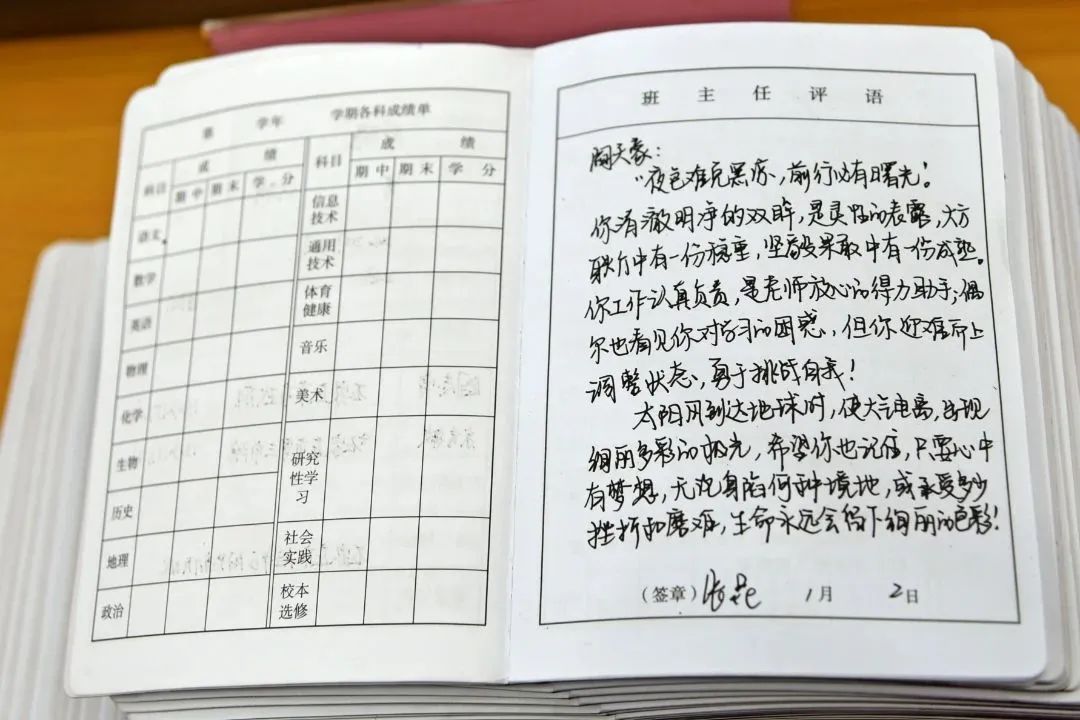 第 学年 学期各科成绩单
科目 成绩 科目 成绩
期中 期末 学分 期中 期末 学分
语文 信息技术
数学 通用技术
英语 体育健康
物理 音乐
化学 美术
生物 研究性学习
历史
地理 社会实践
政治 校本选修
班主任评语
阎天豪：
“夜色难免黑凉，前行必有曙光！
你清澈明净的双眸，是灵性的表露，大方
联欢中有一份稳重，坚毅果敢中有一份成熟。
你工作认真负责，是老师放心的得力助手；偶
尔也看见你对学习的困惑，但你迎难而上
调整状态，勇于挑战自我！
太阳风到达地球时，使大气电离，出现
绚丽多彩的极光，希望你也记住，只要心中
有梦想，无论身陷何种境地，或承受多少
挫折和磨难，生命永远会留下绚丽的色彩！
（签章） 1月 2日